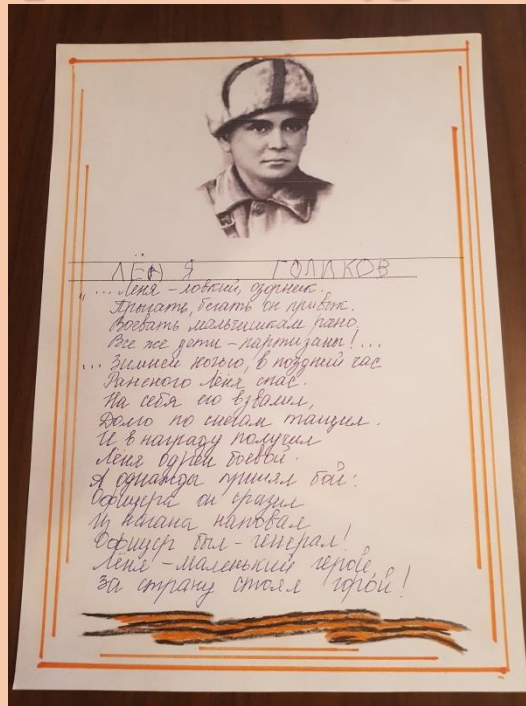 ЛЁНЯ ГОЛИКОВ
"... Лёня – ловкий, озорник.
Прыгать, бегать он привык.
Воевать мальчишкам рано,
Все же дети – партизаны!...
... Зимней ночью, в поздний час
Раненого Лёня спас.
На себя его взвалил,
Долго по снегам тащил.
И в награду получил
Лёня орден боевой.
А однажды принял бой:
Офицера он сразил
Из нагана наповал
Офицер был – генерал!
Лёня – маленький герой,
За страну стоял горой!